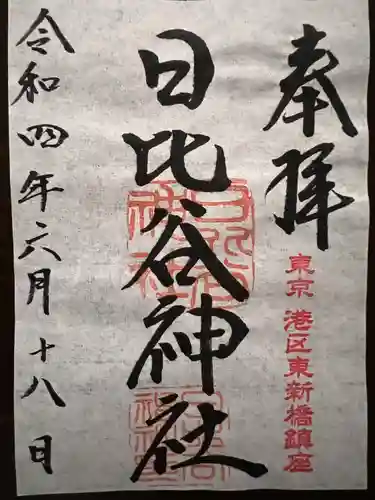 奉拝
東京 港区東新橋鎮座
日比谷神社
令和四年六月十八日